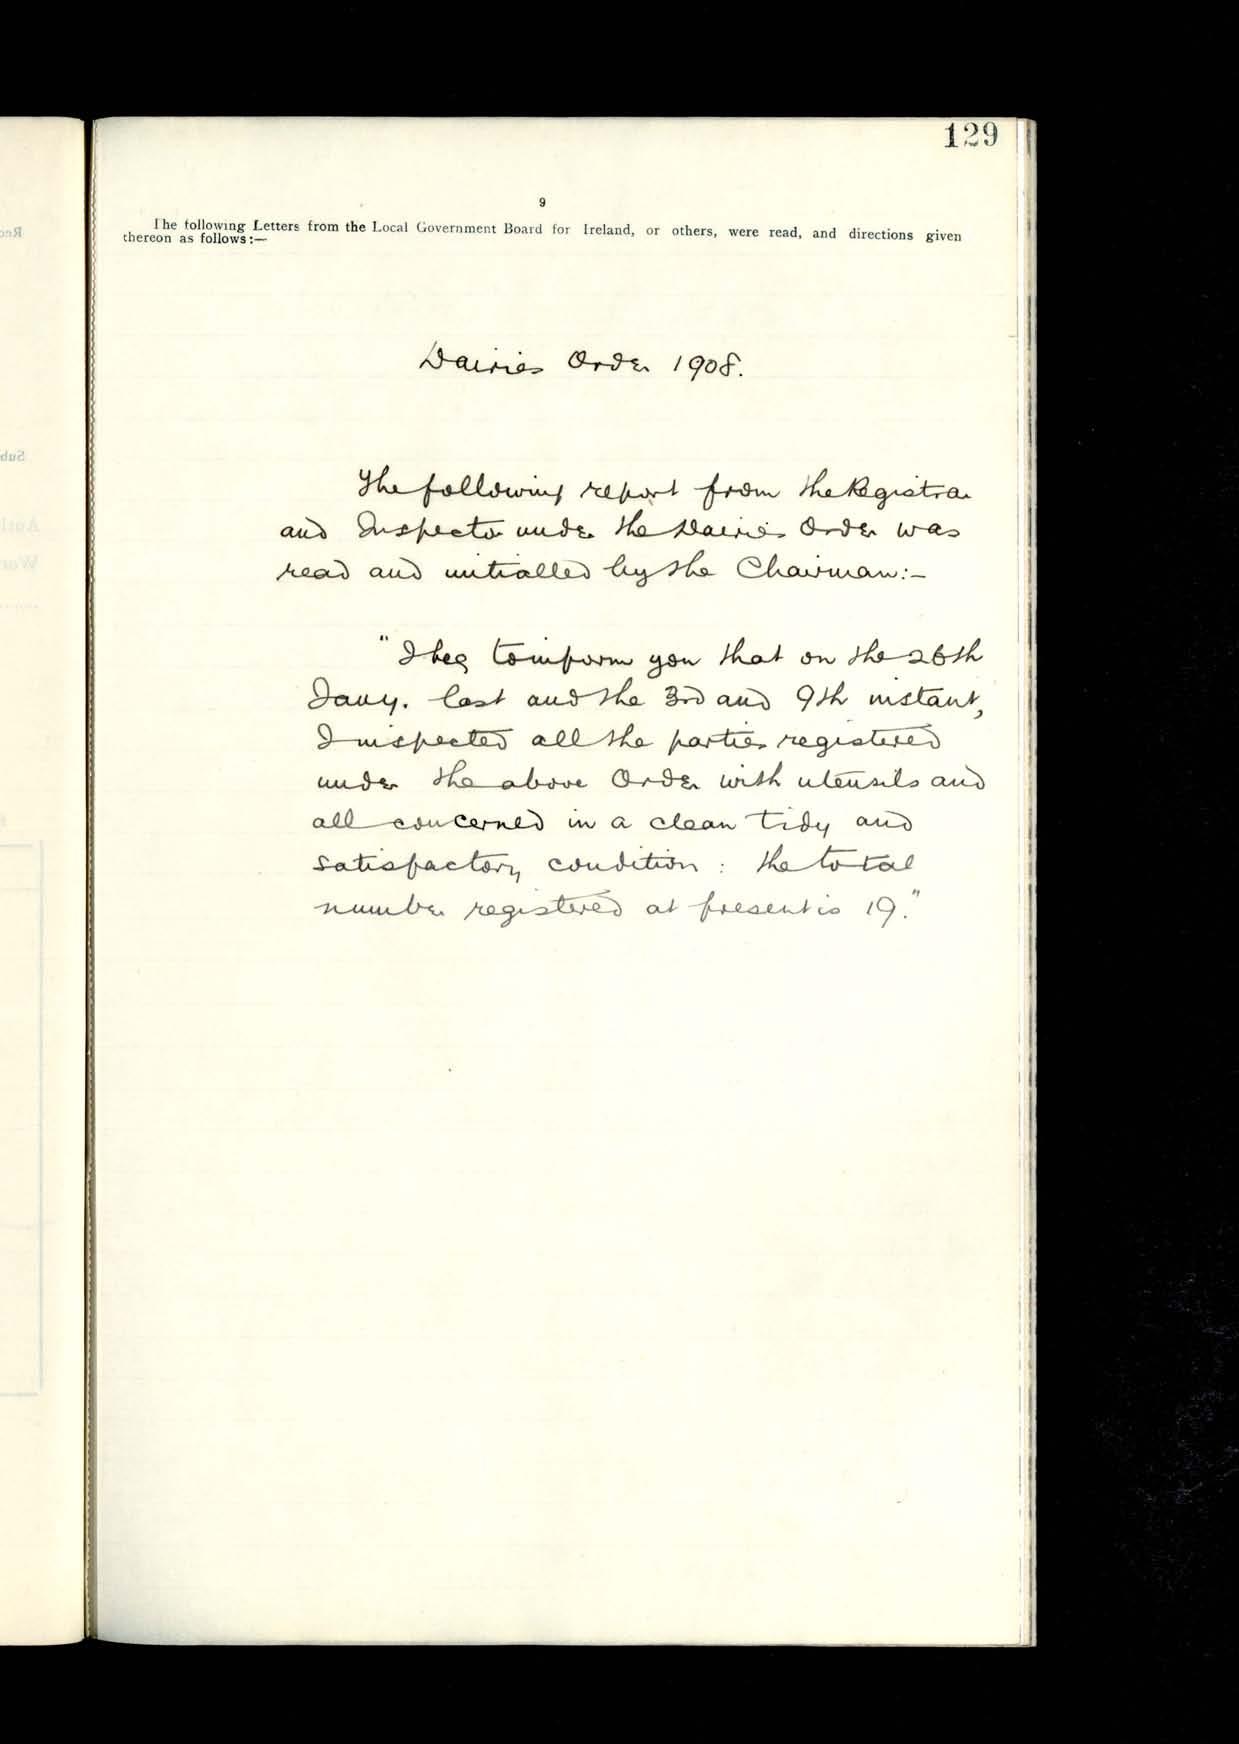 129
9
The following Letters from the Local Government Board for Ireland, or others, were read, and directions given
thereon as follows:—
Dairies Order 1908.
The following report from the Registrar
and Inspector under the Dairies Order was
read and initialled by the Chairman:-
"I beg to inform you that on the 26th
Jany. last and the 3rd and 9th instant,
I inspected all the parties registered
under the above Order with utensils and
all concerned in a clean tidy and
satisfactory condition: the total
number registered at present is 19."